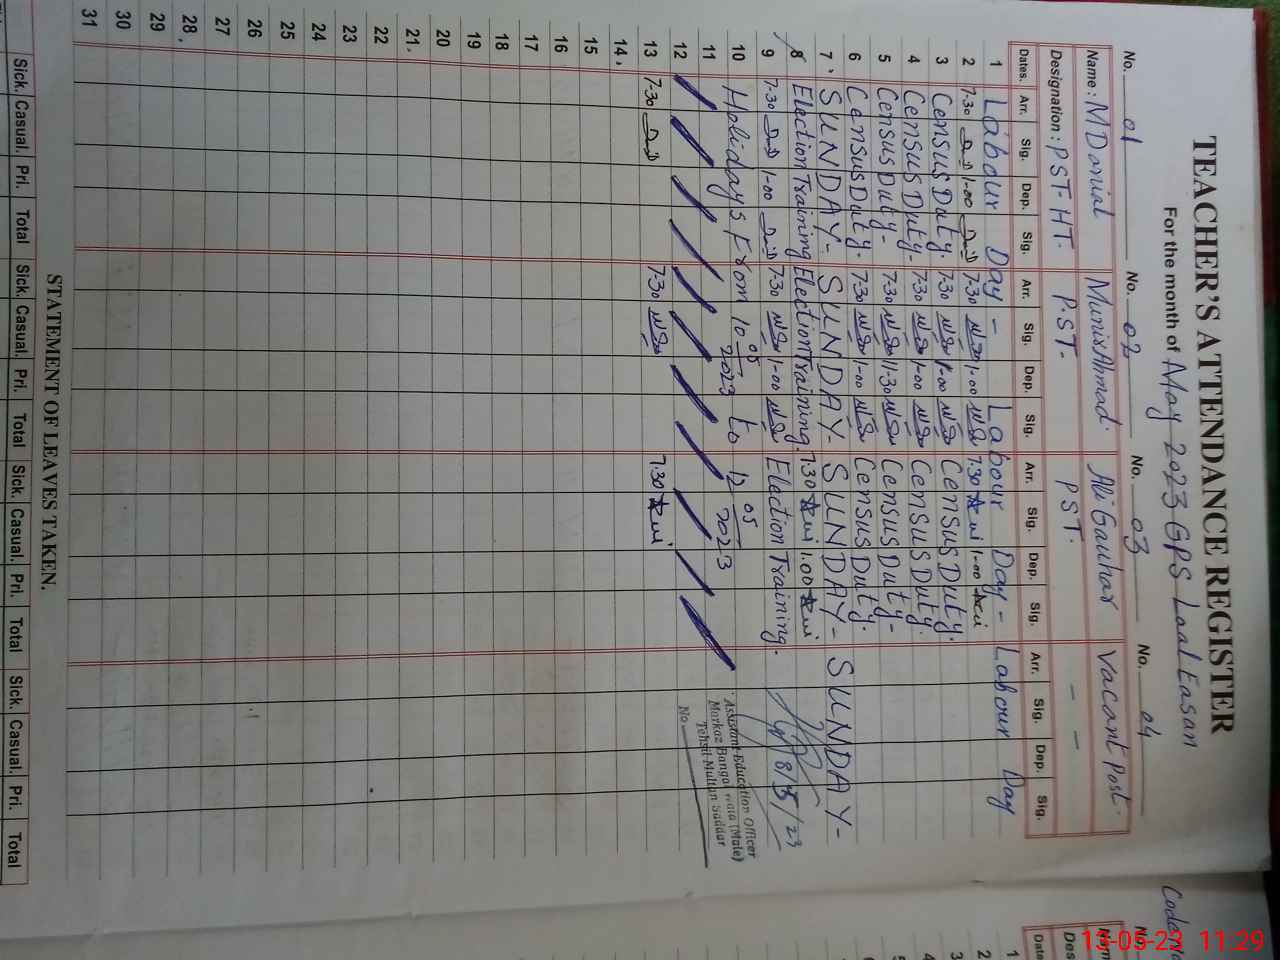 TEACHER'S ATTENDANCE REGISTER
For the month of May 2023 GPS Laal Easan
No. 01 No. 02 No. 03 No. 04
Name: M Danial Munir Ahmad. Ali Gauhar Vacant Post.
Designation: PST-HT. P.ST- PST. - -
Dates. Arr. Sig. Dep. Sig. Arr. Sig. Dep. Sig. Arr. Sig. Dep. Sig. Arr. Sig. Dep. Sig.
1 Labour Day - Labour Day - Labour Day
2 7-30 1-00 7-30 1-00 7-30 1-00
3 Census Duty. 7-30 1-00 Census Duty.
4 Census Duty- 7-30 1-00 Census Duty.
5 Census Duty- 7-30 11-30 Census Duty-
6 Census Duty. 7-30 1-00 Census Duty.
7 SUNDAY- SUNDAY- SUNDAY- SUNDAY-
8 Election Training Election Training. 7.30 1.00
9 7-30 1-00 7-30 1-00 Election Training. 8/5/23
10 Holidays From 10 05/2023 to 12 05/2023
11
12
13 7-30 7-30 7.30
14
15
16
17
18
19
20
21
22
23
24
25
26
27
28
29
30
31
Assistant Education Officer
Markaz Bangal wala (Male)
Tehsil Multan Saddar
No.
STATEMENT OF LEAVES TAKEN.
Sick. Casual. Pri. Total Sick. Casual. Pri. Total Sick. Casual. Pri. Total Sick. Casual. Pri. Total
Code No
No.
Nam
Des
Date
1
2
3
4
13-05-23 11:29